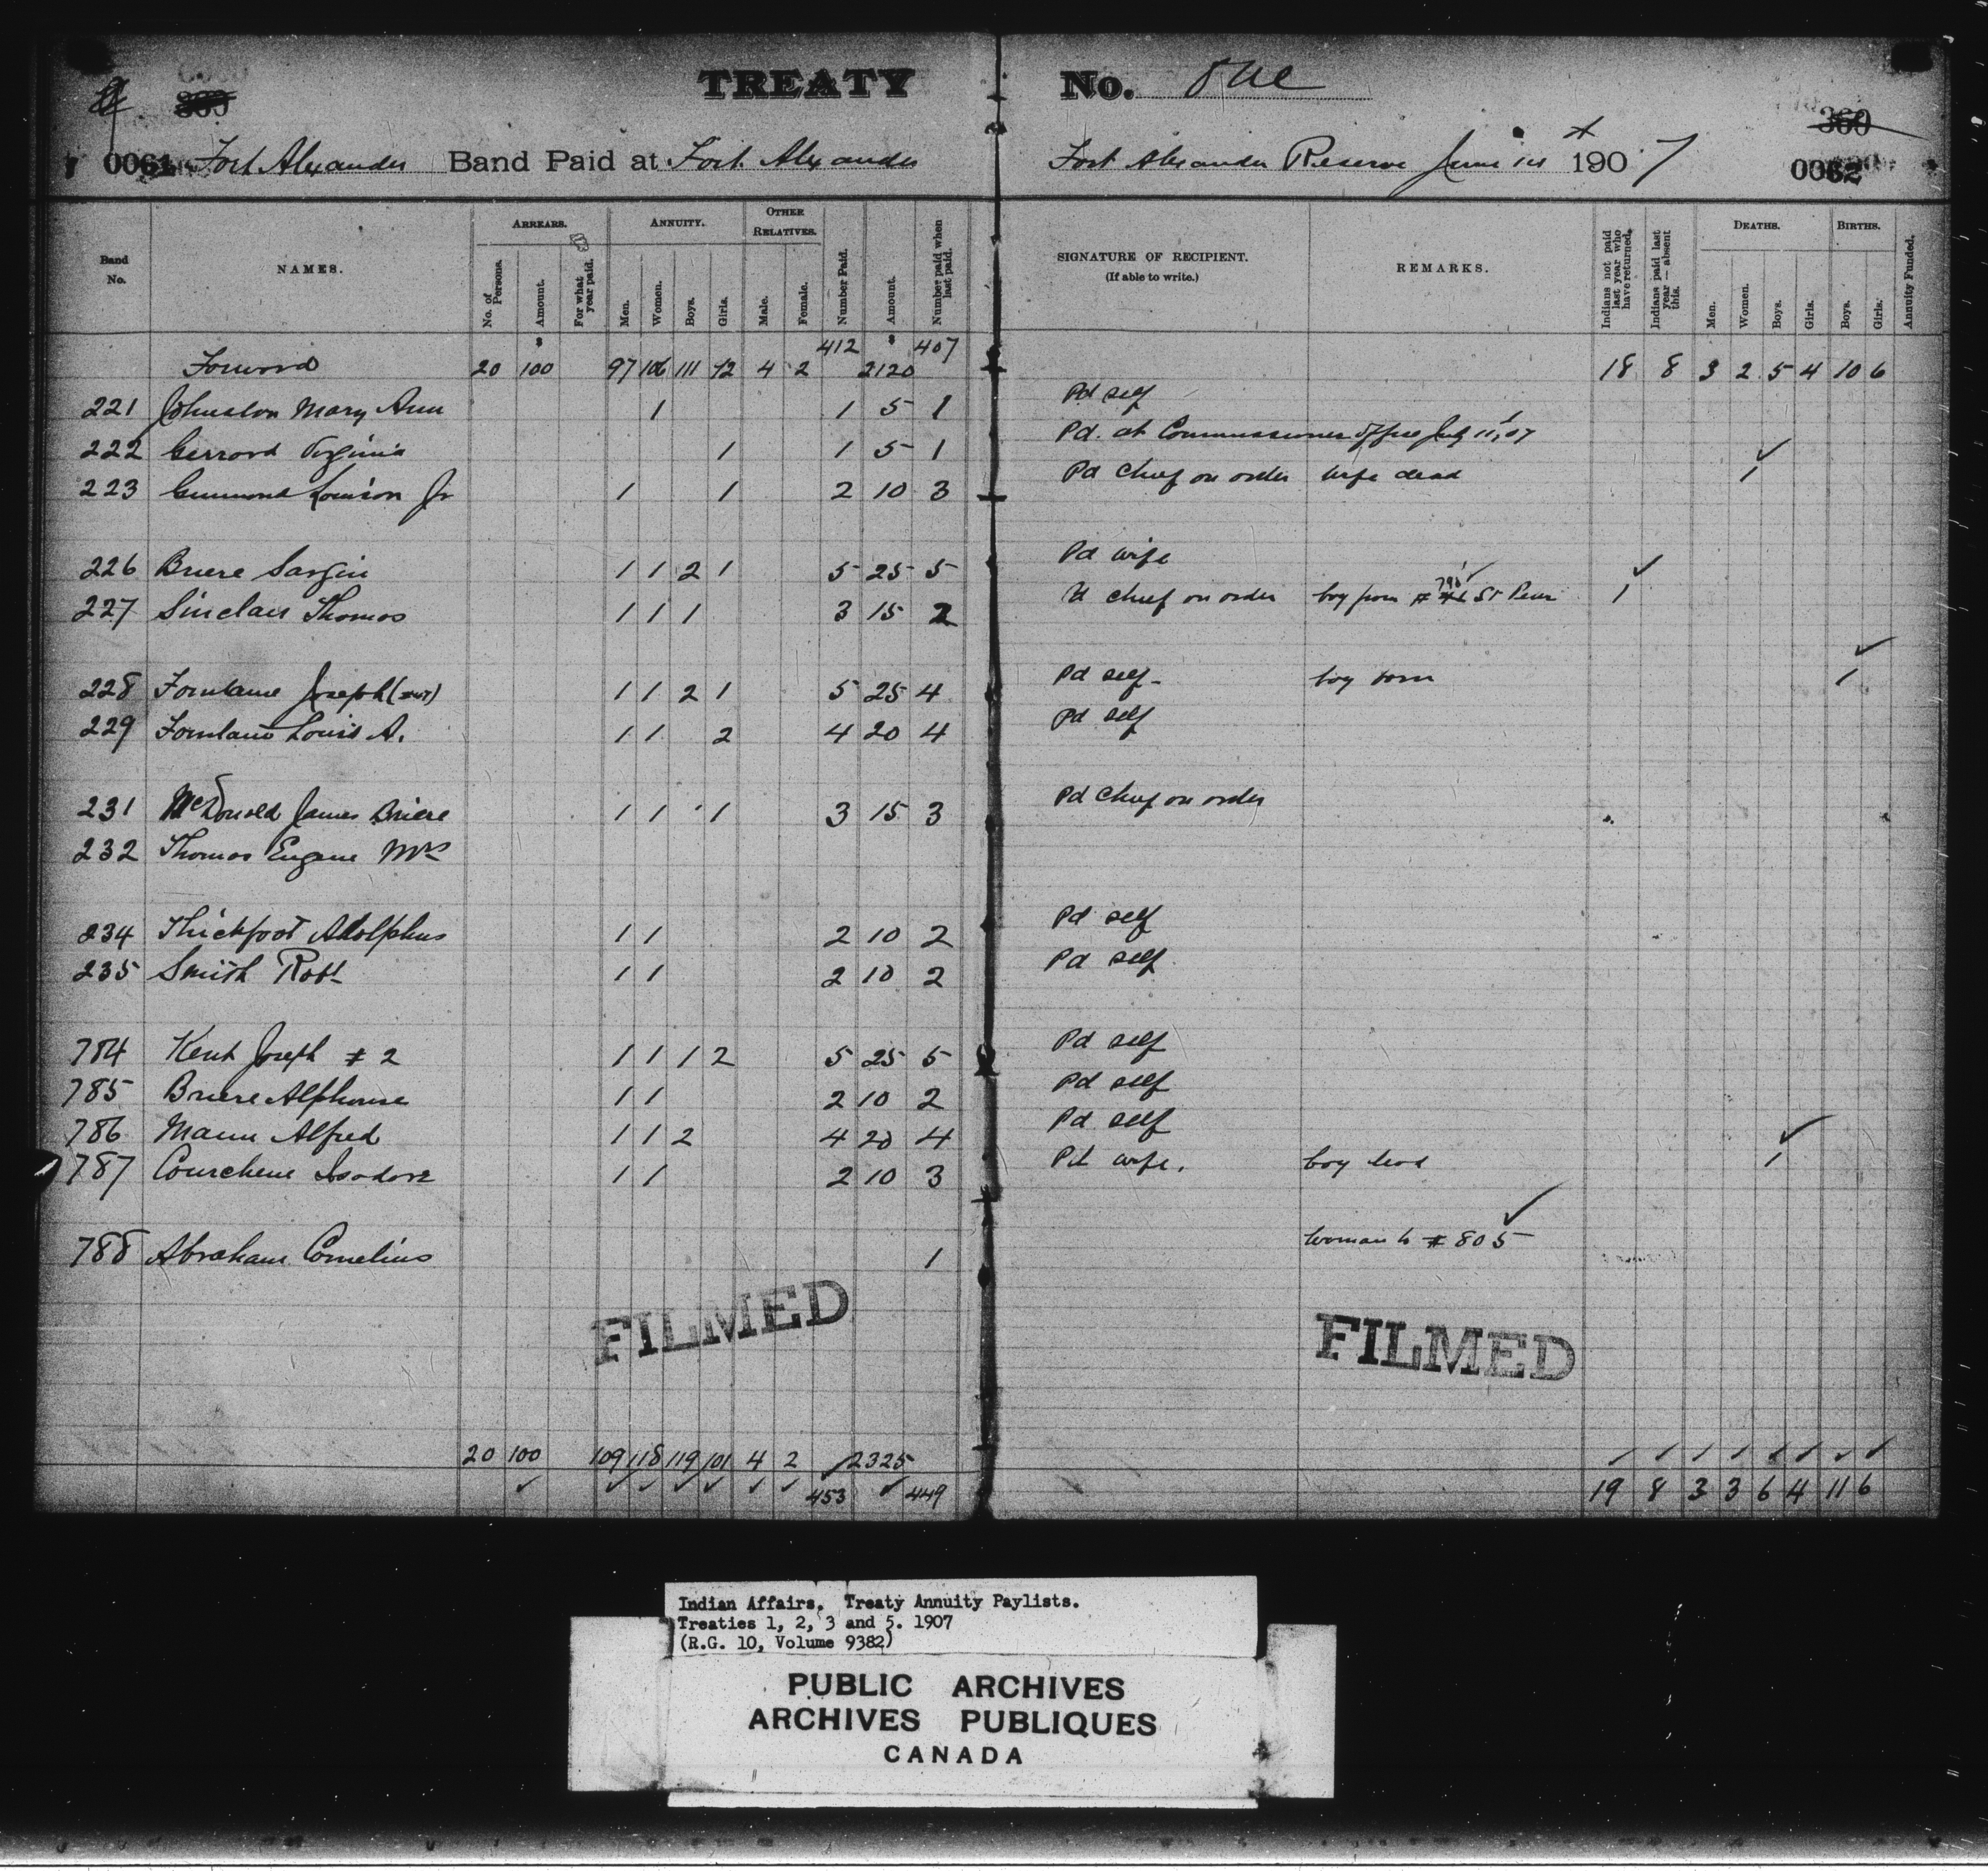 TREATY No. One
0061 Fort Alexander Band Paid at Fort Alexander Fort Alexander Reserve June 190 7 360 0062
Band No. NAMES. ARREARS. No. of Persons. Amount. For what year paid. ANNUITY. Men. Women. Boys. Girls. OTHER RELATIVES. Male. Female. Number Paid. Amount. Number paid when last paid. SIGNATURE OF RECIPIENT. (If able to write.) REMARKS. Indians not paid last year who have returned. Indians paid last year — absent this. DEATHS. Men. Women. Boys. Girls. BIRTHS. Boys. Girls. Annuity Funded.
Forward 20 $ 100 97 106 111 92 4 2 412 $ 2120 407 18 8 3 2 5 4 10 6
221 Johnston Mary Ann 1 1 5 1 Pd self
222 Gerrard Virginia 1 1 5 1 Pd. at Commissioner Office July 11, 07
223 Louison Jr 1 1 2 10 3 Pd Chief on order wife dead 1
226 Briere Sargin 1 1 2 1 5 25 5 Pd wife
227 Sinclair Thomas 1 1 1 3 15 2 Pd chief on order boy from # St Peter 1
228 Fontaine Joseph 1 1 2 1 5 25 4 Pd self boy born 1
229 Fontaine Louis A. 1 1 2 4 20 4 Pd self
231 McDonald James Briere 1 1 1 3 15 3 Pd Chief on order
232 Thomas Eugene Mrs
234 Thickfoot Adolphus 1 1 2 10 2 Pd self
235 Smith Robt 1 1 2 10 2 Pd self
784 Kent Joseph # 2 1 1 1 2 5 25 5 Pd self
785 Briere Alphonse 1 1 2 10 2 Pd self
786 Mann Alfred 1 1 2 4 20 4 Pd self
787 Courchene Isodore 1 1 2 10 3 Pd wife. boy dead 1
788 Abraham Cornelius 1 woman to # 805
FILMED FILMED
20 100 109 118 119 101 4 2 453 2325 449 19 8 3 3 6 4 11 6
Indian Affairs. Treaty Annuity Paylists.
Treaties 1, 2, 3 and 5. 1907
(R.G. 10, Volume 9382)
PUBLIC ARCHIVES
ARCHIVES PUBLIQUES
CANADA